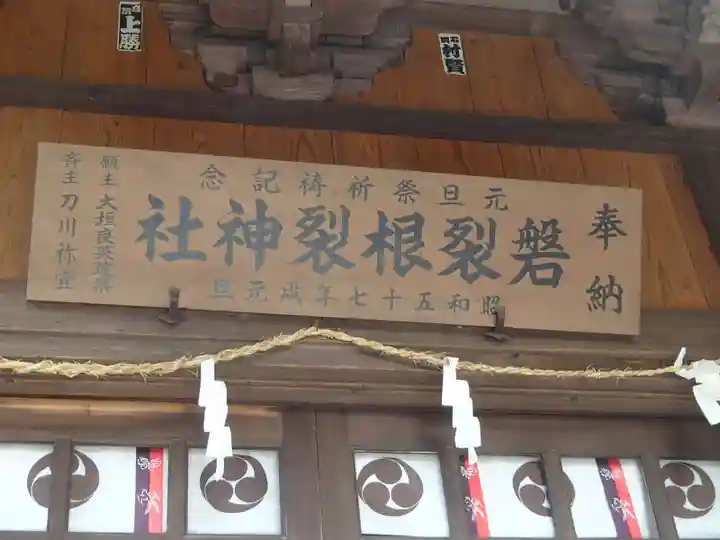 奉納
元旦祭祈祷記念
磐裂根裂神社
昭和五十七年戌元旦
願主 大垣良英
斉主 刀川祢宜
上勝
村賢